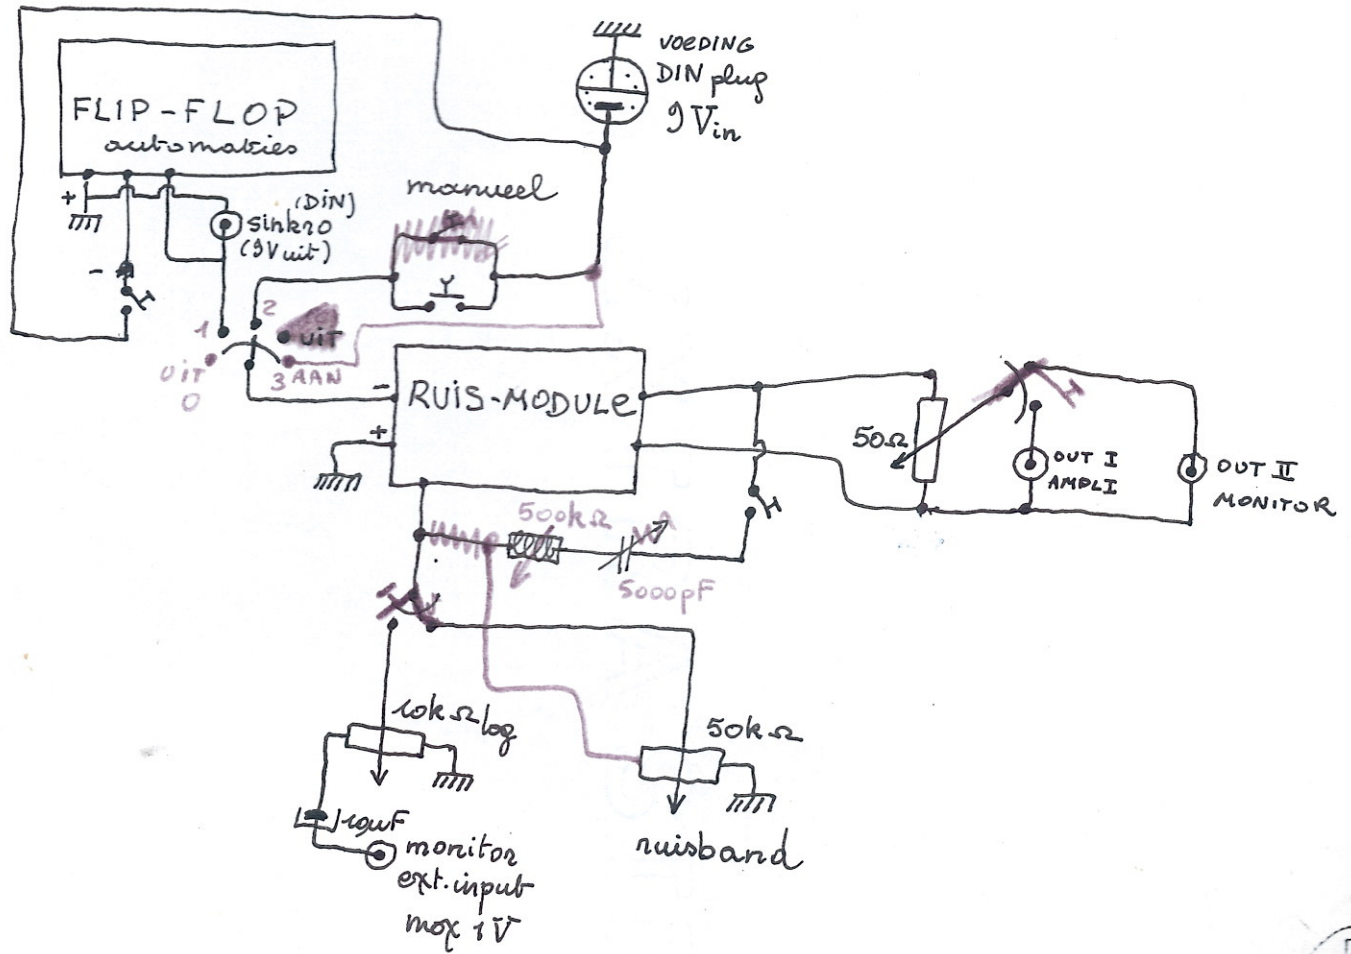 FLIP-FLOP
automaties
+
-
(DIN)
sinkro
(9Vuit)
VOEDING
DIN plug
9Vin
manueel
1
2
UIT
UIT
0
3 AAN
RUIS-MODULE
-
+
50Ω
OUT I
AMPLI
OUT II
MONITOR
500kΩ
5000pF
10kΩ log
50kΩ
10µF
monitor
ext.input
max 1V
ruisband